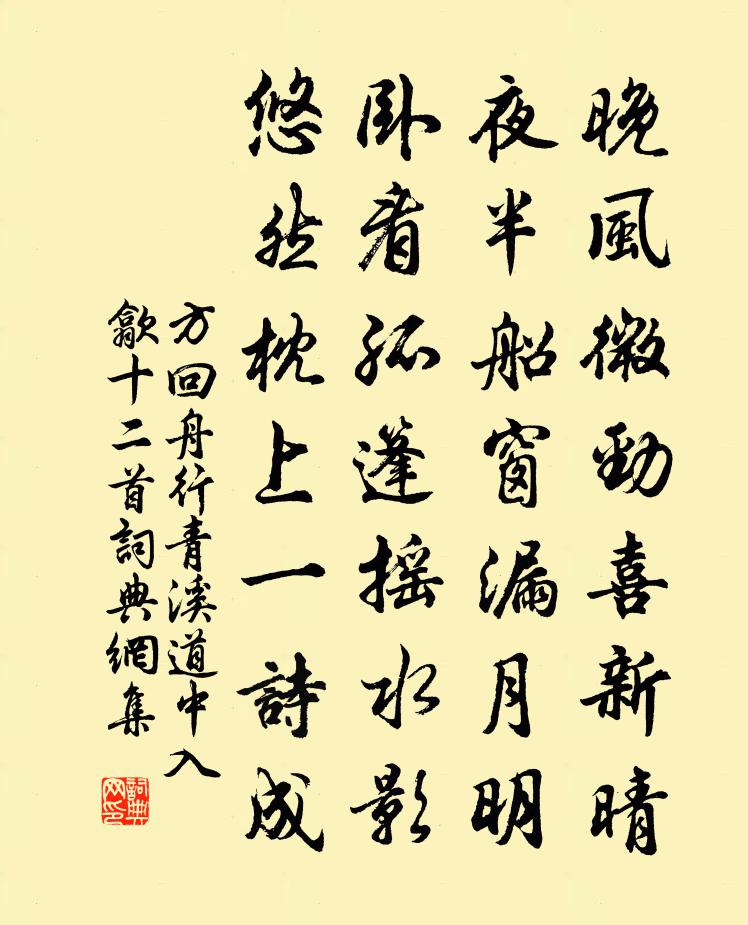 晚風微勁喜新晴
夜半船窗漏月明
卧看孤蓬摇水影
悠然枕上一詩成
方回舟行青溪道中入
歙十二首詞典網集
詞典
网印